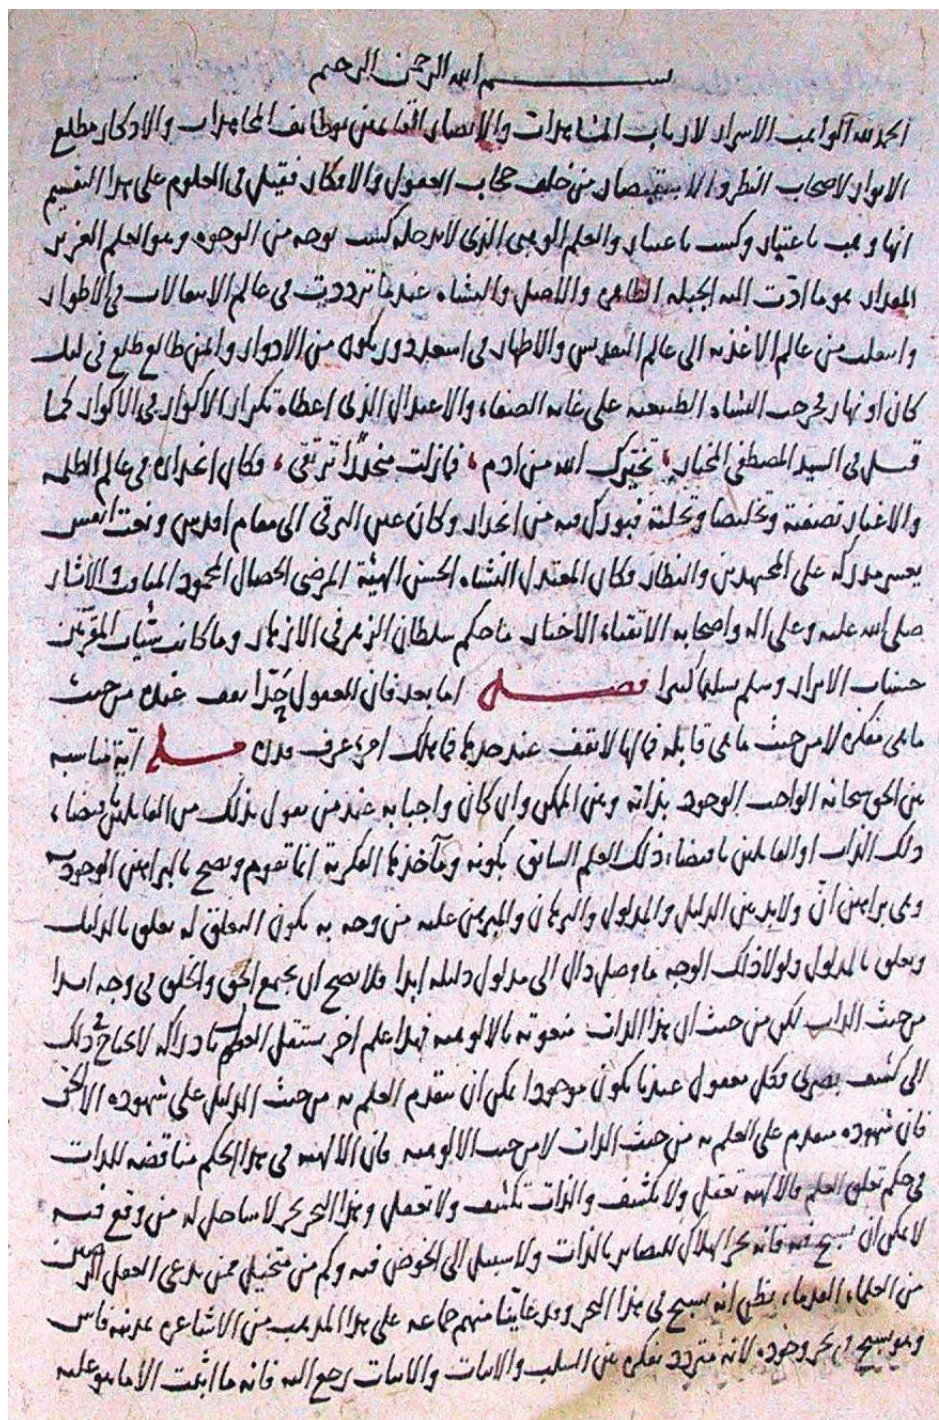 بسم الله الرحمن الرحيم
الحمد لله الواهب الاسرار لارباب المشاهدات والابصار القائمين بوظائف المجاهدات والاذكار مطلع
الانوار لاصحاب النظر والاستبصار من خلف حجاب العقول والافكار فقيل في العلوم على هذا التقسيم
انها وهب باعتبار وكسب باعتبار والعلم الوهبي الذي لا يدخله كسب بوجه من الوجوه وهو العلم العزيز
المقدار هو ما ادّت اليه الجبلة الطاهرة والاصل والنشاة عندما ترددت في عالم الاستحالات في الاطوار
وانتقلت من عالم الاغذية الى عالم التقديس والاطهار في اسعد دور يكون من الادوار وايمن طالع طلع في ليل
كان او نهار فخرجت النشاة الطبيعية على غاية الصفاء والاعتدال الذي اعطاه تكرار الاكوار في الاكوار كما
قيل في السيد المصطفى المختار، تخيّرك الله من ادم، فما زلت منحدرًا ترتقي، فكان انحداره في عالم الظلمة
والاغيار تصفية وتخليصا وتحلية فبورك فيه من انحدار وكان عين الترقي الى مقام اقدس ونعت انفس
يعسر مدركه على المجتهدين والنظار فكان المعتدل النشاة الحسن الهيئة المرضي الخصال المحمود المبادئ والاثار
صلى الله عليه وعلى اله واصحابه الاتقياء الاخيار ما حكم سلطان الزهر في الازهار وما كانت سيّئات المقرّبين
حسنات الابرار وسلم تسليما كثيرا فصل اما بعد فان للعقول حدًّا تقف عنده من حيث
ما هي مفكرة لا من حيث ما هي قابلة فما لها لا تقف عند حدها فما هلك امرؤ عرف قدره فصل اية مناسبة
بين الحق سبحانه الواجب الوجود بذاته وبين الممكن وان كان واجبا به عند من يقول بذلك من القائلين باقتضاء
ذلك الذات او القائلين باقتضاء ذلك العلم السابق بكونه ومآخذها الفكرية انما تقوم وتصح بالبراهين الوجودية
وهي براهين انّ ولا بد بين الدليل والمدلول والبرهان والمبرهن عليه من وجه به يكون التعلق له تعلق بالدليل
وتعلق بالمدلول ولولا ذلك الوجه ما وصل دال الى مدلول دليله ابدا فلا يصح ان يجتمع الحق والخلق في وجه ابدا
من حيث الذات لكن من حيث ان هذه الذات منعوتة بالالوهية فهذا علم اخر يستقل العقل بادراكه لا يحتاج في ذلك
الى كشف بصري فكل معقول عندنا يكون موجودا يمكن ان يتقدم العلم به من حيث الدليل على شهوده الا الحق
فان شهوده متقدم على العلم به من حيث الذات لا من حيث الالوهية فان الالهية في هذا الحكم مناقضة للذات
في حكم تعلق العلم فالالهية تعقل ولا تكشف والذات تكشف ولا تعقل وهذا البحر بحر لا ساحل له من وقع فيه
لا يمكن ان يسبح فيه فانه بحر الهلاك للبصائر بالذات ولا سبيل الى الخوض فيه وكم من متخيل ممن يدعي العقل الرصين
من العلماء القدماء يظن انه يسبح في هذا البحر وقد عاينّا منهم جماعة على هذا المذهب من الاشاعرة بمدينة فاس
وهو يسبح في بحر وجوده لانه متردد بفكره بين السلب والاثبات والاثبات رجع اليه فانه ما اثبت الا ما هو عليه